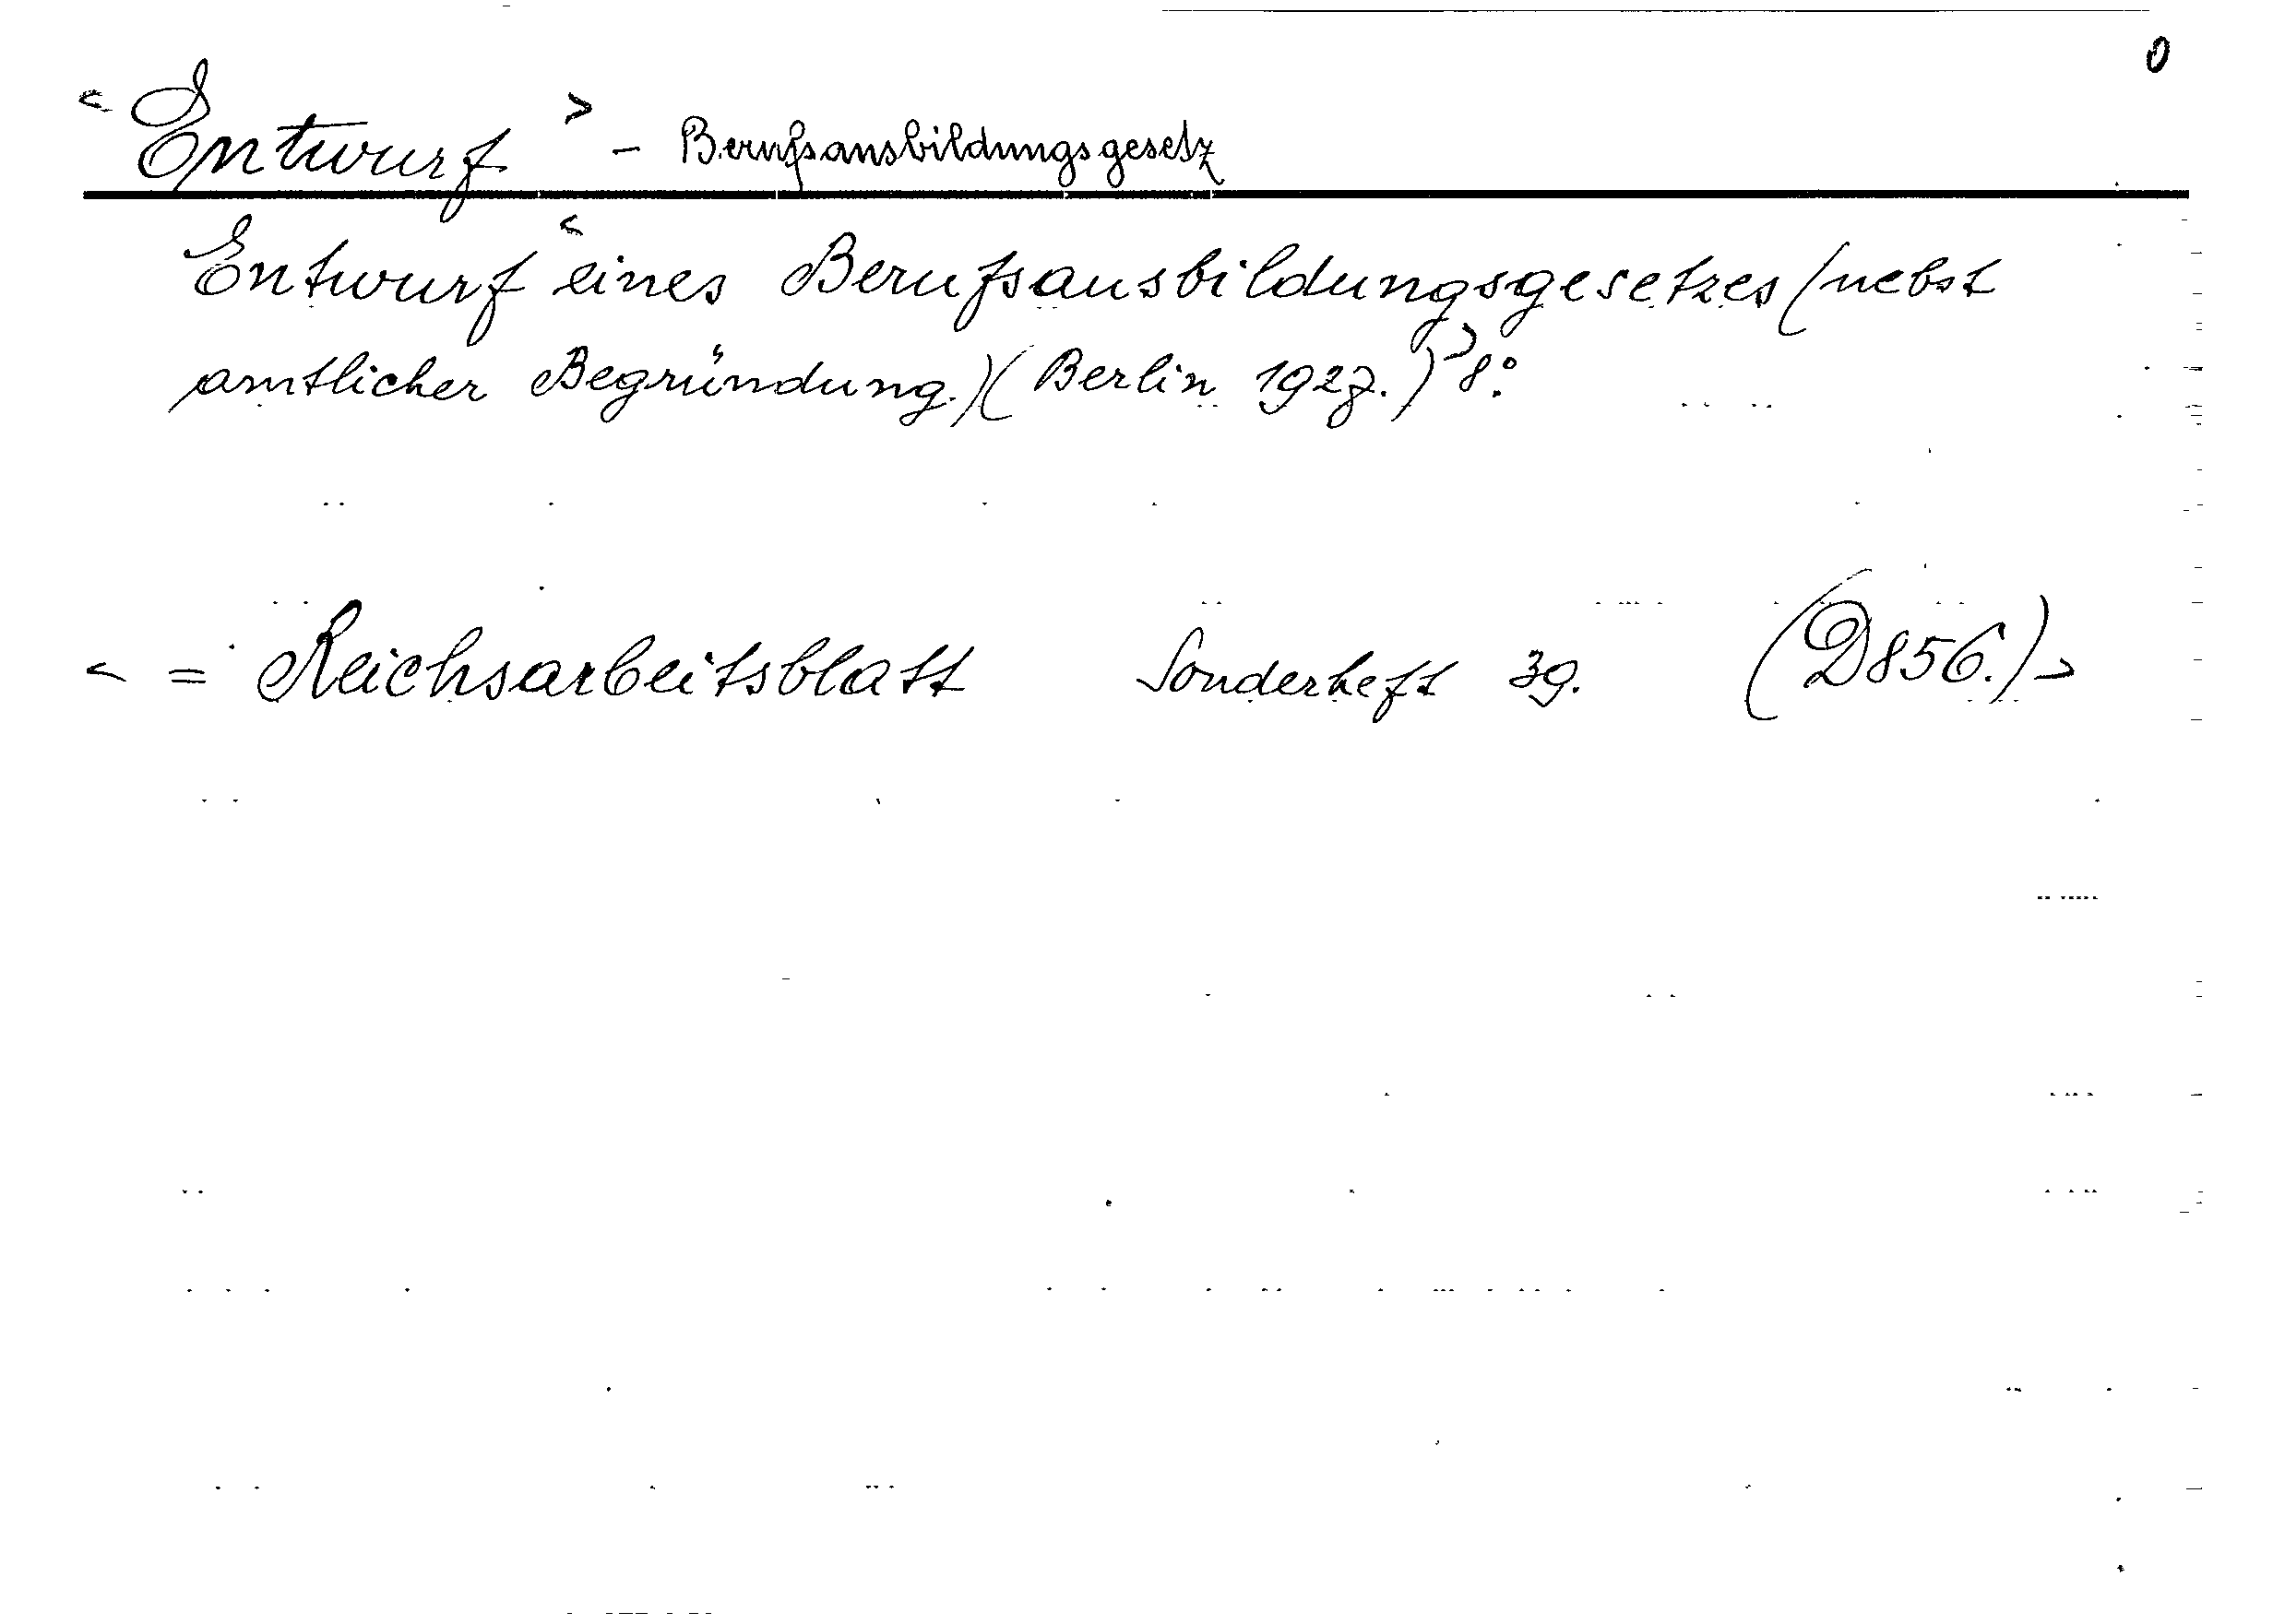 0
< Entwurf > - Berufsausbildungsgesetz
Entwurf < eines Berufsausbildungsgesetzes (nebst
amtlicher Begründung.) (Berlin 1927.) > 8°
< = Reichsarbeitsblatt Sonderheft 39. (D856.) >